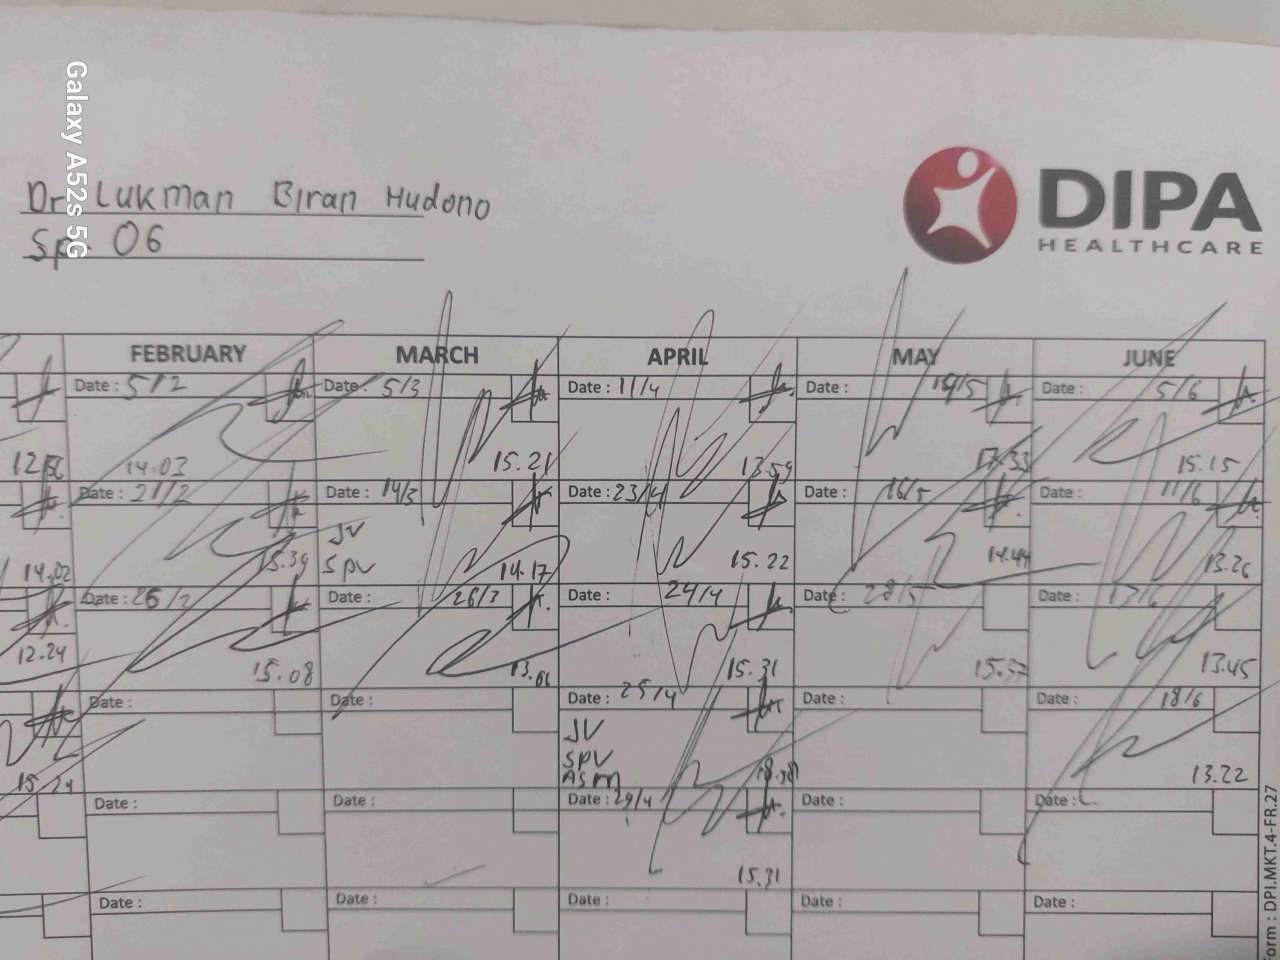 Galaxy A52s 5G
Dr Lukman Biran Hudono
Sp. OG
DIPA
HEALTHCARE
FEBRUARY MARCH APRIL MAY JUNE
Date : 5/2 Date : 5/3 Date : 11/4 Date : Date : 5/6
14.03 15.21 13.59 17.33 15.15
Date : 21/2 Date : 14/3 Date : 23/4 Date : 16/5 Date : 11/6
JV
14.02 15.39 SPV 14.17 15.22 14.44 13.26
Date : 26/2 Date : 26/3 Date : 24/4 Date : 28/5 Date : 13/6
12.24 15.08 13.01 15.31 15.57 13.45
Date : Date : Date : 25/4 Date : Date : 18/6
JV
SPV
15.24 ASM 18.38 13.22
Date : Date : Date : 29/4 Date :
15.31
Date : Date : Date : Date : Date :
Form : DPI.MKT.4-FR.27